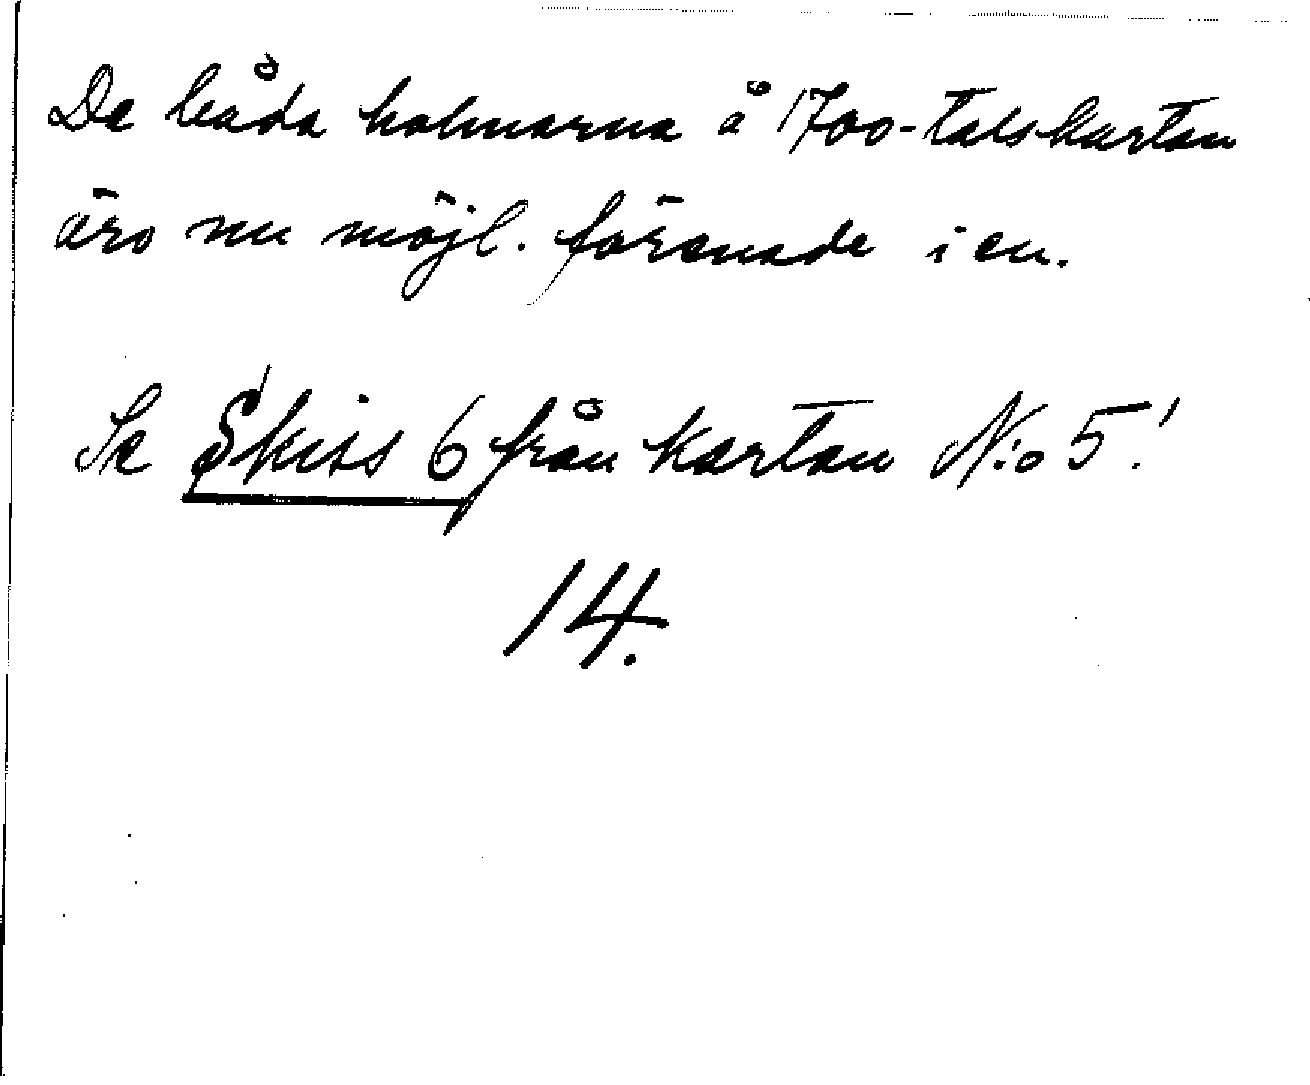 De båda holmarna å 1700-talskartan
äro nu möjl. förenade i en.
Se Skiss 6 från kartan N:o 5!
14.